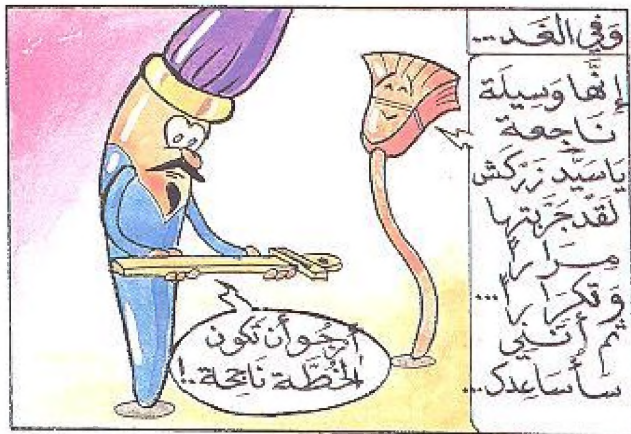 وَفِي الغَد...
إِنَّهَا وَسِيلَة
نَاجِعَة
يَاسَيِّد زَرْكَش
لَقَد جَرَّبْتُهَا
مِرَاراً
وَتِكْرَاراً...
ثُمَّ أَنَّنِي
سَأُسَاعِدُكَ...
أَرْجُو أَن تَكُون
الخُطَّة نَاجِحَة..!